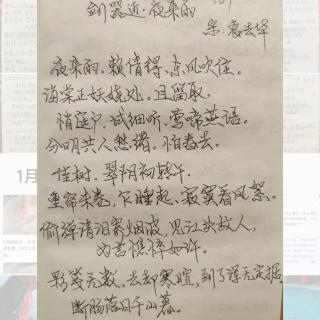 剑器近·夜来雨
宋·袁去华
夜来雨,赖倩得、东风吹住。
海棠正妖娆处。且留取。
悄庭户,试细听、莺啼燕语。
分明共人愁绪。怕春去。
佳树,翠阴初转午。
重帘未卷,乍睡起、寂寞看风絮。
偷弹清泪寄烟波,见江头故人,
为言憔悴如许。
彩笺无数。去却寒暄,到了浑无定据。
断肠落日千山暮。
1月